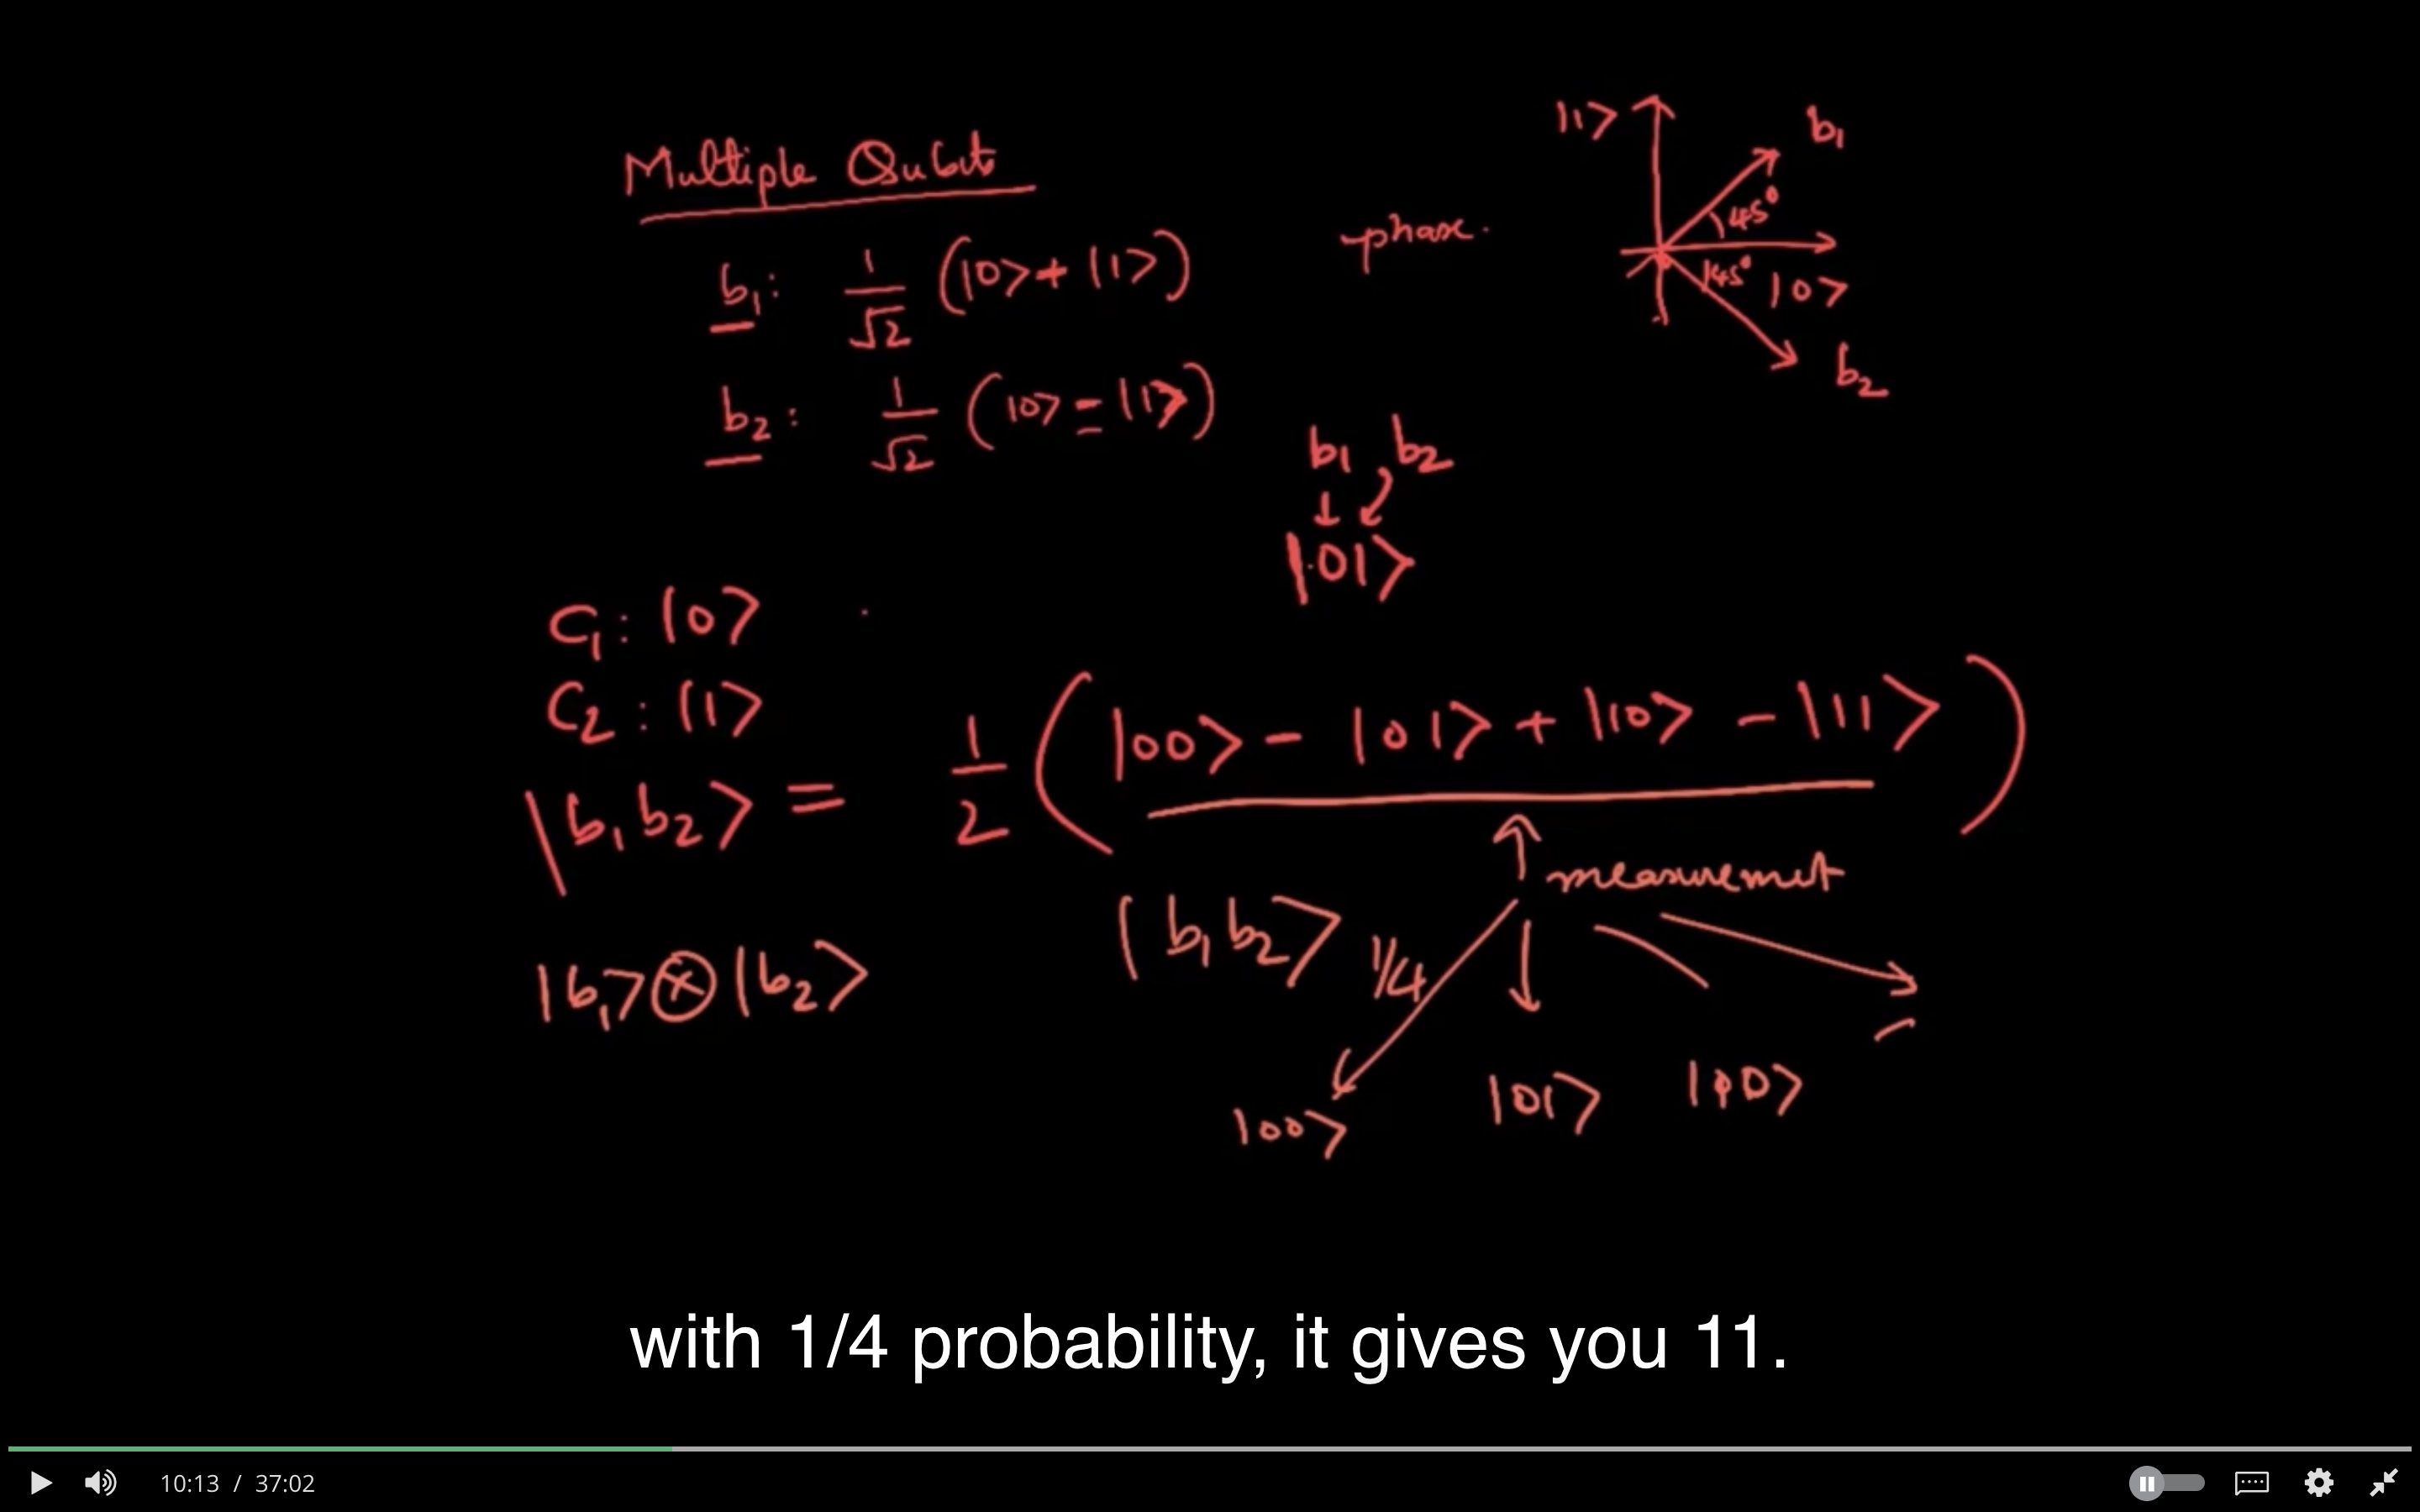 Multiple Qubit
b₁: 1/√2 (|0> + |1>)
phase.
|1>
b₁
45°
45°
|0>
b₂
b₂: 1/√2 (|0> - |1>)
b₁, b₂
|01>
C₁: |0>
C₂: |1>
|b₁b₂> = 1/2 (|00> - |01> + |10> - |11>)
measuremut
|b₁b₂>
1/4
|b₁> ⊗ |b₂>
|00>
|01>
|10>
with 1/4 probability, it gives you 11.
10:13 / 37:02